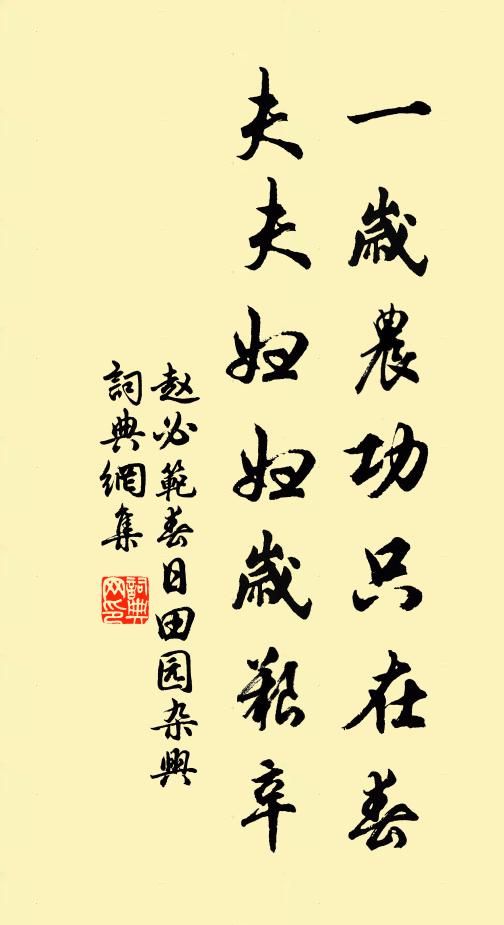 一歲農功只在春
夫夫妇妇歲艱辛
赵必範春日田园杂興
詞典網集
詞典网印